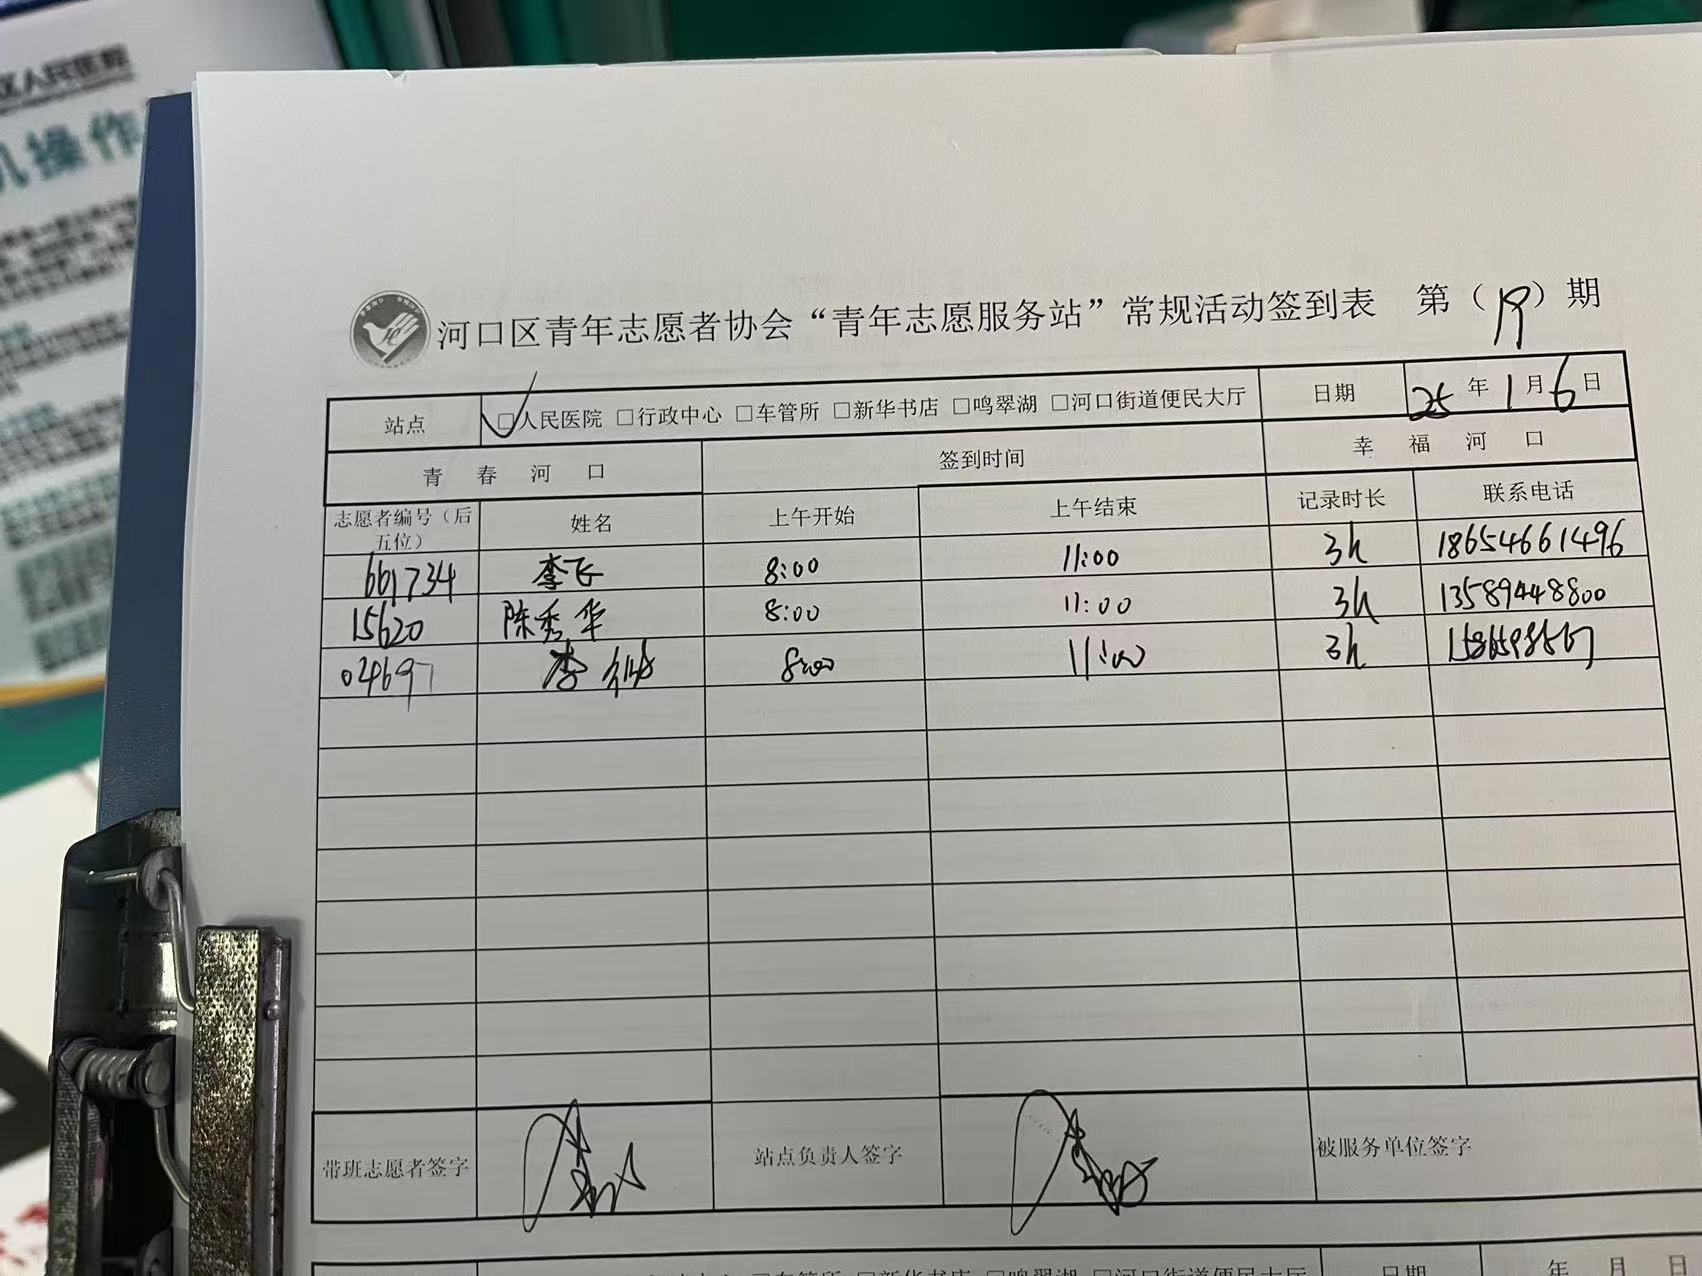 区人民医院
机操作
河口区青年志愿者协会“青年志愿服务站”常规活动签到表 第（19）期
站点 □人民医院 □行政中心 □车管所 □新华书店 □鸣翠湖 □河口街道便民大厅 日期 25年1月6日
青春河口 签到时间 幸福河口
志愿者编号（后五位） 姓名 上午开始 上午结束 记录时长 联系电话
661734 李飞 8:00 11:00 3h 18654661496
15620 陈秀华 8:00 11:00 3h 13589448800
04697 李 8:00 11:00 3h
带班志愿者签字 站点负责人签字 被服务单位签字
□车管所 □新华书店 □鸣翠湖 □河口街道便民大厅 日期 年 月 日